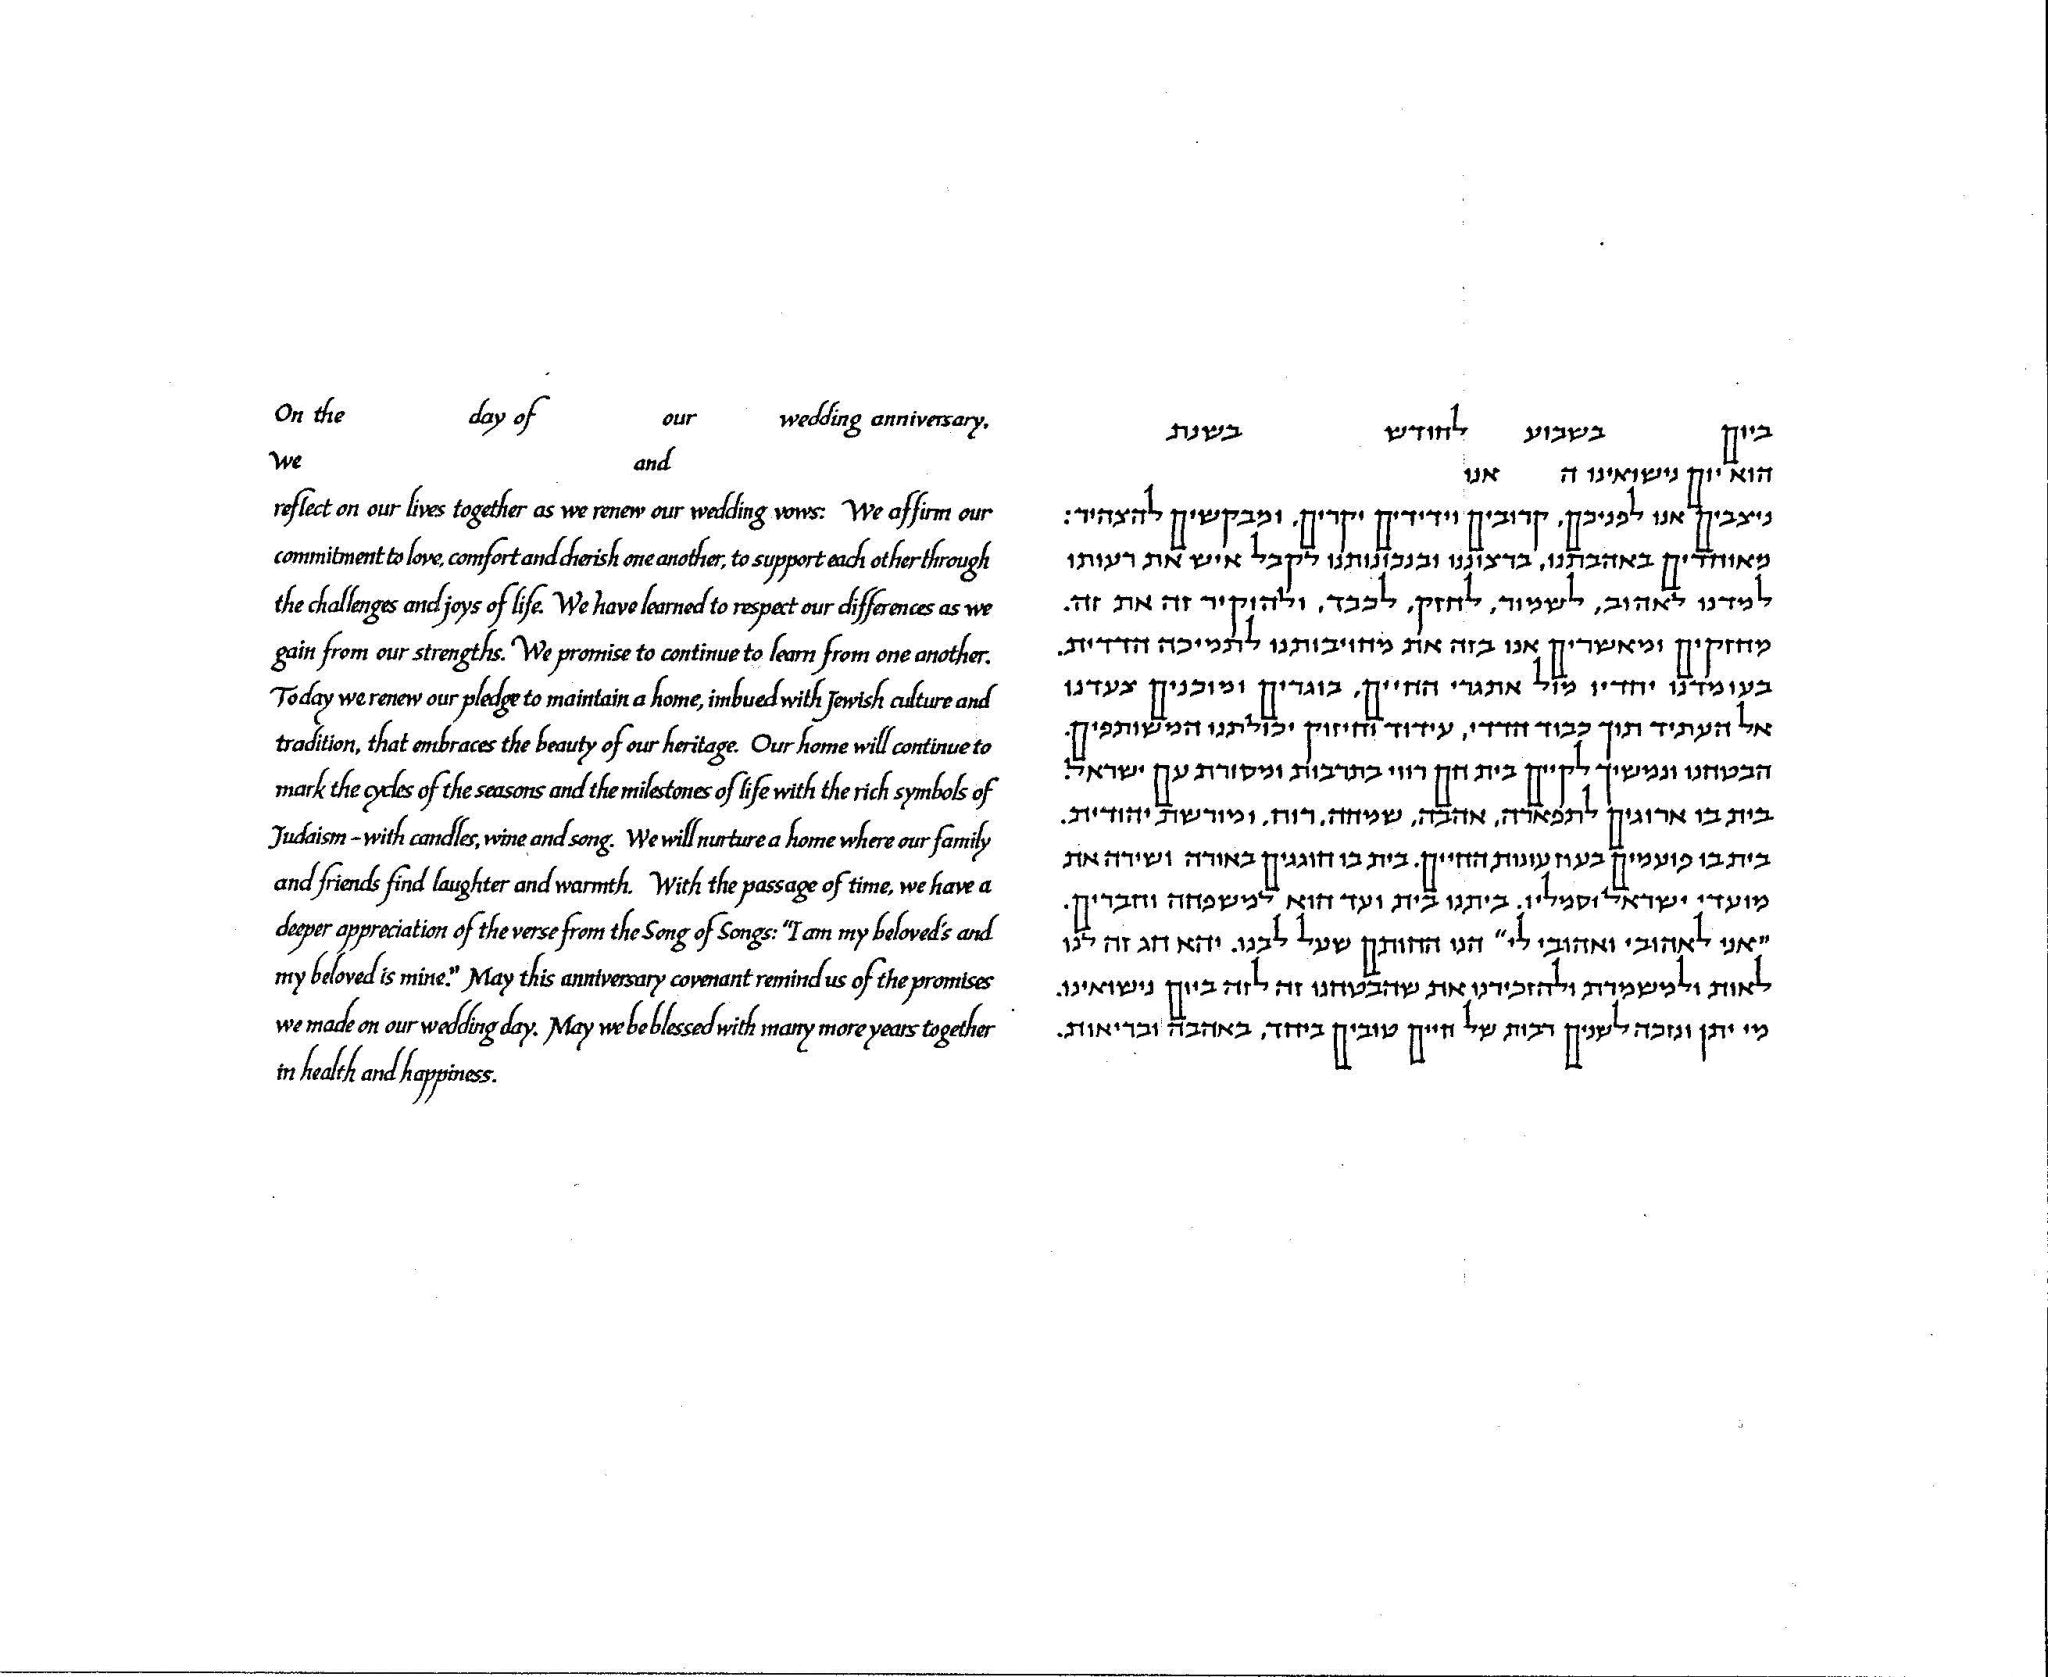 On the day of our wedding anniversary,
We and
reflect on our lives together as we renew our wedding vows: We affirm our
commitment to love, comfort and cherish one another, to support each other through
the challenges and joys of life. We have learned to respect our differences as we
gain from our strengths. We promise to continue to learn from one another.
Today we renew our pledge to maintain a home, imbued with Jewish culture and
tradition, that embraces the beauty of our heritage. Our home will continue to
mark the cycles of the seasons and the milestones of life with the rich symbols of
Judaism - with candles, wine and song. We will nurture a home where our family
and friends find laughter and warmth. With the passage of time, we have a
deeper appreciation of the verse from the Song of Songs: "I am my beloved's and
my beloved is mine." May this anniversary covenant remind us of the promises
we made on our wedding day. May we be blessed with many more years together
in health and happiness.
ביום בשבוע לחודש בשנת
הוא יום נישואינו ה אנו
ניצבים אנו לפניכם, קרובים וידידים יקרים, ומבקשים להצהיר:
מאוחדים באהבתנו, ברצוננו ובנכונותנו לקבל איש את רעותו
למדנו לאהוב, לשמור, לחזק, לכבד, ולהוקיר זה את זה.
מחזקים ומאשרים אנו בזה את מחויבותנו לתמיכה הדדית.
בעומדנו יחדיו מול אתגרי החיים, בוגרים ומוכנים צעדנו
אל העתיד תוך כבוד הדדי, עידוד וחיזוק יכולתנו המשותפים.
הבטחנו ונמשיך לקיים בית חם רווי בתרבות ומסורת עם ישראל.
בית בו ארוגים לתפארה, אהבה, שמחה, רוח, ומורשת יהודית.
בית בו פועמים בעוז עונות החיים. בית בו חוגגים באורה ושירה את
מועדי ישראל וסמליו. ביתנו בית ועד הוא למשפחה וחברים.
"אני לאהובי ואהובי לי" הנו החותם שעל לבנו. יהא חג זה לנו
לאות ולמשמרת ולהזכירנו את שהבטחנו זה לזה ביום נישואינו.
מי יתן ונזכה לשנים רבות של חיים טובים ביחד, באהבה ובריאות.